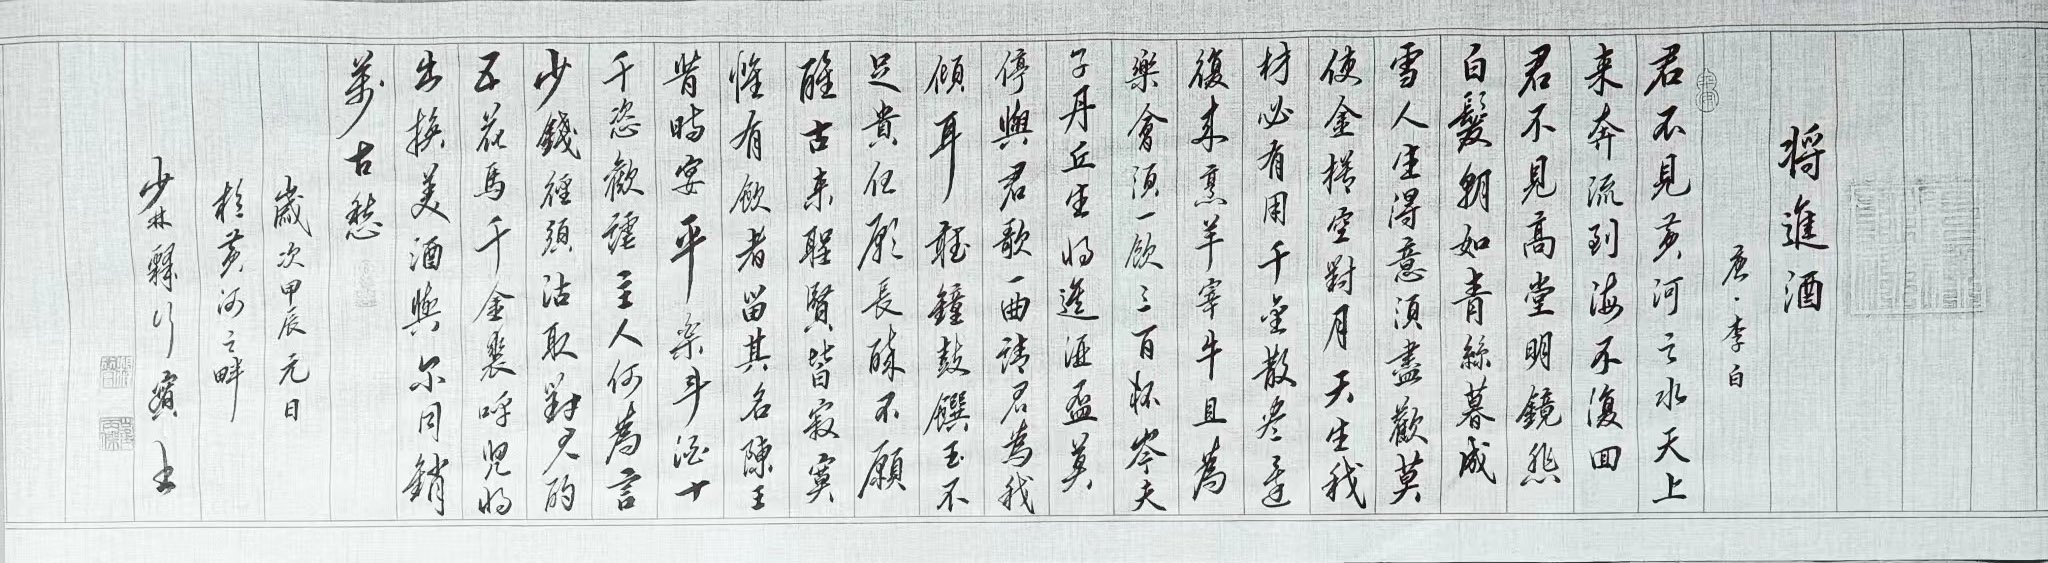 將進酒
唐·李白
君不見黃河之水天上
来奔流到海不復回
君不見高堂明鏡悲
白髮朝如青絲暮成
雪人生得意須盡歡莫
使金樽空對月天生我
材必有用千金散盡還
復来烹羊宰牛且為
樂會須一飲三百杯岑夫
子丹丘生將進酒盃莫
停與君歌一曲請君為我
傾耳聽鐘鼓饌玉不
足貴但願長醉不願
醒古来聖賢皆寂寞
惟有飲者留其名陳王
昔時宴平樂斗酒十
千恣歡謔主人何為言
少錢徑須沽取對君酌
五花馬千金裘呼兒將
出換美酒與尔同銷
萬古愁
歲次甲辰元日
於黃河之畔
少林